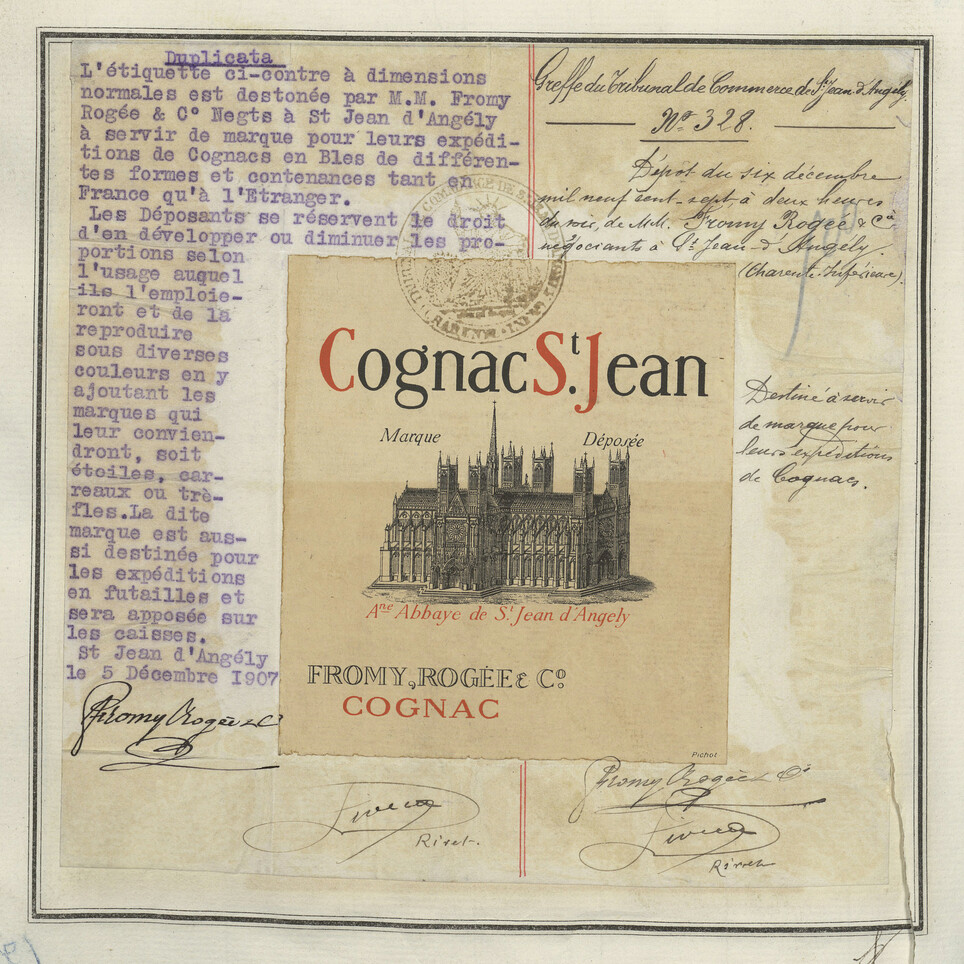 Duplicata
L'étiquette ci-contre à dimensions
normales est destonée par M.M. Fromy
Rogée & Cº Negts à St Jean d'Angély
à servir de marque pour leurs expédi-
tions de Cognacs en Bles de différen-
tes formes et contenances tant en
France qu'à l'Etranger.
Les Déposants se réservent le droit
d'en développer ou diminuer les pro-
portions selon
l'usage auquel
ils l'emploie-
ront et de la
reproduire
sous diverses
couleurs en y
ajoutant les
marques qui
leur convien-
dront, soit
étoiles, car-
reaux ou trè-
fles.La dite
marque est aus-
si destinée pour
les expéditions
en futailles et
sera apposée sur
les caisses.
St Jean d'Angély
le 5 Décembre 1907
Fromy Rogée & Cº
Greffe du Tribunal de Commerce de St Jean d'Angély.
Nº 328.
Dépôt du six décembre
mil neuf cent-sept, à deux heures
du soir, de M.M. Fromy Rogée & Cie
négociants à St Jean-d'Angély.
(Charente-Inférieure).
Destiné à servir
de marque pour
leurs expéditions
de Cognacs.
Cognac St. Jean
Marque Déposée
Ane Abbaye de St Jean d'Angely
FROMY, ROGÉE & Cº
COGNAC
Pichot
Fromy Rogée & Cº
Rivet.
Rivet